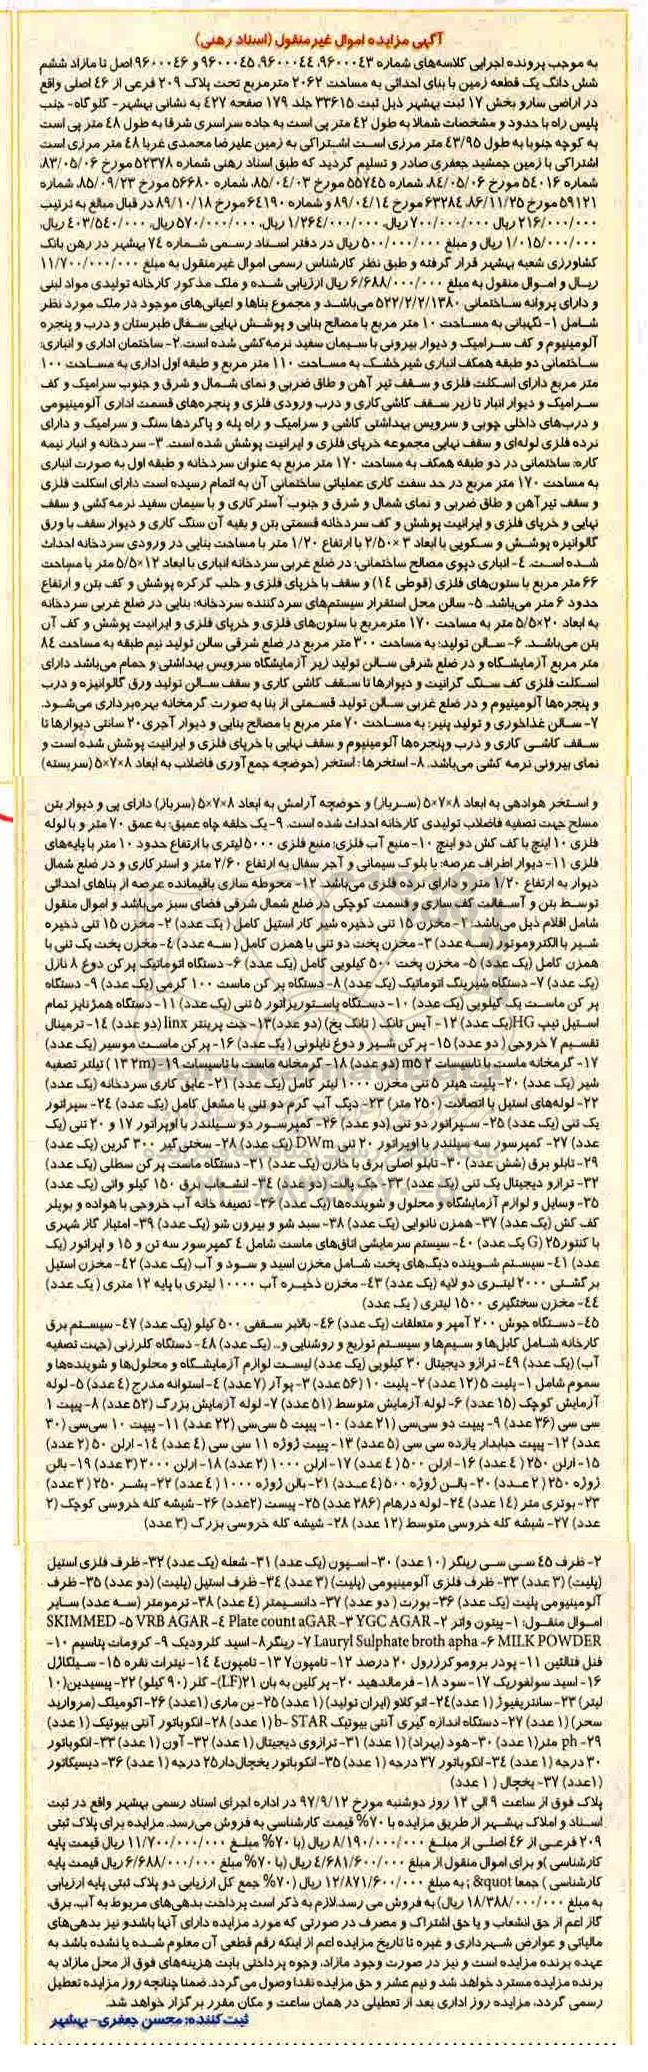 آگهی مزایده اموال غیرمنقول (اسناد رهنی)
به موجب پرونده اجرایی کلاسه‌های شماره ۹۶۰۰۰۴۳، ۹۶۰۰۰۴۴، ۹۶۰۰۰۴۵ و ۹۶۰۰۰۴۶ اصل تا مازاد ششم
شش دانگ یک قطعه زمین با بنای احداثی به مساحت ۲۰۶۲ مترمربع تحت پلاک ۲۰۹ فرعی از ۴۶ اصلی واقع
در اراضی سارو بخش ۱۷ ثبت بهشهر ذیل ثبت ۳۳۶۱۵ جلد ۱۷۹ صفحه ۴۲۷ به نشانی بهشهر- گلوگاه- جنب
پلیس راه با حدود و مشخصات شمالا به طول ۴۲ متر پی است به جاده سراسری شرقا به طول ۴۸ متر پی است
به کوچه جنوبا به طول ۴۳/۹۵ متر مرزی است اشتراکی به زمین علیرضا محمدی غربا ۴۸ متر مرزی است
اشتراکی با زمین جمشید جعفری صادر و تسلیم گردید که طبق اسناد رهنی شماره ۵۲۳۷۸ مورخ ۸۳/۰۵/۰۶،
شماره ۵۴۰۱۶ مورخ ۸۴/۰۵/۰۶، شماره ۵۵۷۴۵ مورخ ۸۵/۰۴/۰۳، شماره ۵۶۶۸۰ مورخ ۸۵/۰۹/۲۳، شماره
۵۹۱۲۱ مورخ ۸۶/۱۱/۲۵، ۶۳۲۸۴ مورخ ۸۹/۰۴/۱۴ و شماره ۶۴۱۹۰ مورخ ۸۹/۱۰/۱۸ در قبال مبالغ به ترتیب
۲۱۶/۰۰۰/۰۰۰ ریال ۷۰۰/۰۰۰/۰۰۰ ریال، ۱/۲۶۴/۰۰۰/۰۰۰ ریال، ۵۷۰/۰۰۰/۰۰۰ ریال، ۴۰۳/۵۴۰/۰۰۰ ریال،
۱/۰۱۵/۰۰۰/۰۰۰ ریال و مبلغ ۵۰۰/۰۰۰/۰۰۰ ریال در دفتر اسناد رسمی شماره ۷۴ بهشهر در رهن بانک
کشاورزی شعبه بهشهر قرار گرفته و طبق نظر کارشناس رسمی اموال غیرمنقول به مبلغ ۱۱/۷۰۰/۰۰۰/۰۰۰
ریال و اموال منقول به مبلغ ۶/۶۸۸/۰۰۰/۰۰۰ ریال ارزیابی شده و ملک مذکور کارخانه تولیدی مواد لبنی
و دارای پروانه ساختمانی ۵۲۲/۲/۲/۱۳۸۰ می‌باشد و مجموع بناها و اعیانی‌های موجود در ملک مورد نظر
شامل ۱- نگهبانی به مساحت ۱۰ متر مربع با مصالح بنایی و پوشش نهایی سفال طبرستان و درب و پنجره
آلومینیوم و کف سرامیک و دیوار بیرونی با سیمان سفید نرمه کشی شده است. ۲- ساختمان اداری و انباری:
ساختمانی دو طبقه همکف انباری شیرخشک به مساحت ۱۱۰ متر مربع و طبقه اول اداری به مساحت ۱۰۰
متر مربع دارای اسکلت فلزی و سقف تیر آهن و طاق ضربی و نمای شمال و شرق و جنوب سرامیک و کف
سرامیک و دیوار انبار تا زیر سقف کاشی کاری و درب ورودی فلزی و پنجره‌های قسمت اداری آلومینیومی
و درب‌های داخلی چوبی و سرویس بهداشتی کاشی و سرامیک و راه پله و پاگردها سنگ و سرامیک و دارای
نرده فلزی لوله‌ای و سقف نهایی مجموعه خرپای فلزی و ایرانیت پوشش شده است. ۳- سردخانه و انبار نیمه
کاره: ساختمانی در دو طبقه همکف به مساحت ۱۷۰ متر مربع به عنوان سردخانه و طبقه اول به صورت انباری
به مساحت ۱۷۰ متر مربع در حد سفت کاری عملیاتی ساختمانی آن به اتمام رسیده است دارای اسکلت فلزی
و سقف تیرآهن و طاق ضربی و نمای شمال و شرق و جنوب آسترکاری و با سیمان سفید نرمه کشی و سقف
نهایی و خرپای فلزی و ایرانیت پوشش و کف سردخانه قسمتی بتن و بقیه آن سنگ کاری و دیوار سقف با ورق
گالوانیزه پوشش و سکویی با ابعاد ۳ ×۲/۵۰ با ارتفاع ۱/۲۰ متر با مساحت بنایی در ورودی سردخانه احداث
شده است. ۴- انباری دپوی مصالح ساختمانی: در ضلع غربی سردخانه انباری با ابعاد ۱۲×۵/۵ متر با مساحت
۶۶ متر مربع با ستون‌های فلزی (قوطی ۱۴) و سقف با خرپای فلزی و حلب کرکره پوشش و کف بتن و ارتفاع
حدود ۶ متر می‌باشد. ۵- سالن محل استقرار سیستم‌های سردکننده سردخانه: بنایی در ضلع غربی سردخانه
به ابعاد ۲۰×۵/۵ متر به مساحت ۱۷۰ مترمربع با ستون‌های فلزی و خرپای فلزی و ایرانیت پوشش و کف آن
بتن می‌باشد. ۶- سالن تولید: به مساحت ۳۰۰ متر مربع در ضلع شرقی سالن تولید نیم طبقه به مساحت ۸۴
متر مربع آزمایشگاه و در ضلع شرقی سالن تولید زیر آزمایشگاه سرویس بهداشتی و حمام می‌باشد دارای
اسکلت فلزی کف سنگ گرانیت و دیوارها تا سقف کاشی کاری و سقف سالن تولید ورق گالوانیزه و درب
و پنجره‌ها آلومینیوم و در ضلع غربی سالن تولید قسمتی از بنا به صورت گرمخانه بهره‌برداری می‌شود.
۷- سالن غذاخوری و تولید پنیر: به مساحت ۷۰ متر مربع با مصالح بنایی و دیوار آجری ۲۰ سانتی دیوارها تا
سقف کاشی کاری و درب وپنجره‌ها آلومینیوم و سقف نهایی با خرپای فلزی و ایرانیت پوشش شده است و
نمای بیرونی نرمه کشی می‌باشد. ۸- استخرها: استخر (حوضچه جمع‌آوری فاضلاب به ابعاد ۸×۷×۵ (سربسته)
و استخر هوادهی به ابعاد ۸×۷×۵ (سرباز) و حوضچه آرامش به ابعاد ۸×۷×۵ (سرباز) دارای پی و دیوار بتن
مسلح جهت تصفیه فاضلاب تولیدی کارخانه احداث شده است. ۹- یک حلقه چاه عمیق: به عمق ۷۰ متر و با لوله
فلزی ۱۰ اینچ با کف کش دو اینچ ۱۰- منبع آب فلزی: منبع فلزی ۵۰۰۰ لیتری با ارتفاع حدود ۱۰ متر با پایه‌های
فلزی ۱۱- دیوار اطراف عرصه: با بلوک سیمانی و آجر سفال به ارتفاع ۲/۶۰ متر و استر کاری و در ضلع شمال
دیوار به ارتفاع ۱/۲۰ متر و دارای نرده فلزی می‌باشد. ۱۲- محوطه سازی باقیمانده عرصه از بناهای احداثی
توسط بتن و آسفالت کف سازی و قسمت کوچکی در ضلع شمال شرقی فضای سبز می‌باشد و اموال منقول
شامل اقلام ذیل می‌باشد: ۱- مخزن ۱۵ تنی ذخیره شیر کار استیل کامل ( یک عدد) ۲- مخزن ۱۵ تنی ذخیره
شیر با الکتروموتور (سه عدد) ۳- مخزن پخت دو تنی با همزن کامل ( سه عدد) ۴- مخزن پخت یک تنی با
همزن کامل (یک عدد) ۵- مخزن پخت ۵۰۰ کیلویی کامل (یک عدد) ۶- دستگاه اتوماتیک پرکن دوغ ۸ نازل
(یک عدد) ۷- دستگاه شیرینگ اتوماتیک (یک عدد) ۸- دستگاه پر کن ماست ۱۰۰ گرمی (یک عدد) ۹- دستگاه
پر کن ماست یک کیلویی (یک عدد) ۱۰- دستگاه پاستوریزاتور ۵ تنی (یک عدد) ۱۱- دستگاه همژنایز تمام
استیل تیپ HG(یک عدد) ۱۲- آیس تانک ( تانک یخ) (دو عدد)۱۳- جت پرینتر linx (دو عدد) ۱۴- ترمینال
تقسیم ۷ خروجی ( دو عدد) ۱۵- پرکن شیر و دوغ نایلونی ( یک عدد) ۱۶- پر کن ماست موسیر (یک عدد)
۱۷- گرمخانه ماست با تاسیسات m۵ ۲ (دو عدد) ۱۸- گرمخانه ماست با تاسیسات m۲ ۱۳) ۱۹- فیلتر تصفیه
شیر (یک عدد) ۲۰- پلیت هیتر ۵ تنی مخزن ۱۰۰۰ لیتر کامل (یک عدد) ۲۱- عایق کاری سردخانه (یک عدد)
۲۲- لوله‌های استیل با اتصالات (۲۵۰ متر) ۲۳- دیگ آب گرم دو تنی با مشعل کامل (یک عدد) ۲۴- سپراتور
یک تنی (یک عدد) ۲۵- سپراتور دو تنی (دو عدد) ۲۶- کمپرسور دو سیلندر با اوپراتور ۱۷ و ۲۰ تنی (یک
عدد) ۲۷- کمپرسور سه سیلندر با اوپراتور ۲۰ تنی DWm (یک عدد) ۲۸- سختی گیر ۳۰۰ گرین (یک عدد)
۲۹- تابلو برق (شش عدد) ۳۰- تابلو اصلی برق با خازن (یک عدد) ۳۱- دستگاه ماست پر کن سطلی (یک عدد)
۳۲- ترازو دیجیتال یک تنی (یک عدد) ۳۳- جک پالت (دو عدد) ۳۴- انشعاب برق ۱۵۰ کیلو واتی (یک عدد)
۳۵- وسایل و لوازم آزمایشگاه و محلول و شوینده‌ها (یک عدد) ۳۶- تصفیه خانه آب خروجی با هواده و بویلر
کف کش (یک عدد) ۳۷- همزن نانوایی (یک عدد) ۳۸- سبد شو و بیرون شو (یک عدد) ۳۹- امتیاز گاز شهری
با کنتور۲۵ (G یک عدد) ۴۰- سیستم سرمایشی اتاق‌های ماست شامل ۴ کمپرسور سه تن و ۱۵ و اپراتور (یک
عدد) ۴۱- سیستم شوینده دیگ‌های پخت شامل مخزن اسید و سود و آب (یک عدد) ۴۲- مخزن استیل
برگشتی ۲۰۰۰ لیتری دو لایه (یک عدد) ۴۳- مخزن ذخیره آب ۱۰۰۰۰ لیتری با پایه ۱۲ متری ( یک عدد)
۴۴- مخزن سختگیری ۱۵۰۰ لیتری ( یک عدد)
۴۵- دستگاه جوش ۲۰۰ آمپر و متعلقات (یک عدد) ۴۶- بالابر سقفی ۵۰۰ کیلو (یک عدد) ۴۷- سیستم برق
کارخانه شامل کابل‌ها و سیم‌ها و سیستم توزیع و روشنایی و... (یک عدد) ۴۸- دستگاه کلرزنی (جهت تصفیه
آب) (یک عدد) ۴۹- ترازو دیجیتال ۳۰ کیلویی (یک عدد) لیست لوازم آزمایشگاه و محلول‌ها و شوینده‌ها و
سموم شامل ۱- پلیت ۵ (۱۲ عدد) ۲- پلیت ۱۰ (۵۶ عدد) ۳- پوآر (۷ عدد) ۴- استوانه مدرج (۴ عدد) ۵- لوله
آزمایش کوچک (۱۵ عدد) ۶- لوله آزمایش متوسط (۵۱ عدد) ۷- لوله آزمایش بزرگ (۵۲ عدد) ۸- پیپت ۱
سی سی (۳۶ عدد) ۹- پیپت دو سی‌سی (۲۱ عدد) ۱۰- پیپت ۵ سی‌سی (۲۲ عدد) ۱۱- پیپت ۱۰ سی‌سی (۳۰
عدد) ۱۲- پیپت حبابدار یازده سی سی (۵ عدد) ۱۳- پیپت ژوژه ۱۱ سی سی (۴ عدد) ۱۴- ارلن ۵۰ (۲ عدد)
۱۵- ارلن ۲۵۰ ( ۴ عدد) ۱۶- ارلن ۵۰۰ ( ۴ عدد) ۱۷- ارلن ۱۰۰۰ (۲ عدد) ۱۸- ارلن ۲۰۰۰ (۳ عدد) ۱۹- بالن
ژوژه ۲۵۰ ( ۲ عدد) ۲۰- بالن ژوژه ۵۰۰ (۴ عدد) ۲۱- بالن ژوژه ۱۰۰۰ ( ۴ عدد) ۲۲- بشر ۲۵۰ ( ۳ عدد)
۲۳- بوتری متر (۱۴ عدد) ۲۴- لوله درهام (۲۸۶ عدد) ۲۵- پیست (۲عدد) ۲۶- شیشه کله خروسی کوچک (۲
عدد) ۲۷- شیشه کله خروسی متوسط (۱۲ عدد) ۲۸- شیشه کله خروسی بزرگ (۳ عدد)
۲- ظرف ۴۵ سی سی رینگر (۱۰ عدد) ۳۰- اسپون (یک عدد) ۳۱- شعله (یک عدد) ۳۲- ظرف فلزی استیل
(پلیت) (۳ عدد) ۳۳- ظرف فلزی آلومینیومی (پلیت) (۳ عدد) ۳۴- ظرف استیل (پلیت) (دو عدد) ۳۵- ظرف
آلومینیومی پلیت (یک عدد) ۳۶- بورت ( دو عدد) ۳۷- دانسیمتر (۴ عدد) ۳۸- ترمومتر (سه عدد) سایر
اموال منقول: ۱- پپتون واتر ۲- YGC AGAR ۳- Plate count aGAR ۴- VRB AGAR ۵- SKIMMED
MILK POWDER ۶- Lauryl Sulphate broth apha ۷- رینگر ۸- اسید کلرودیک ۹- کرومات پتاسیم ۱۰-
فنل فتالئین ۱۱- پودر بروموکرزرول ۲۰ درصد ۱۲- تامپون۷ ۱۳- تامپون۴ ۱۴- نیترات نقره ۱۵- سیلکاژل
۱۶- اسید سولفوریک ۱۷- سود ۱۸- فرمالدهید ۲۰- پرکلین به بان ۲۱(LF)- کلر (۹۰ کیلو) ۲۲- پیسیدین(۱۰
لیتر) ۲۳- سانتریفیوژ (۱ عدد)۲۴- اتوکلاو (ایران تولید) (۱ عدد) ۲۵- بن ماری (۱عدد) ۲۶- اکومیلک (مروارید
سحر) (۱ عدد) ۲۷- دستگاه اندازه گیری آنتی بیوتیک b- STAR (۱ عدد) ۲۸- انکوباتور آنتی بیوتیک (۱ عدد)
۲۹- ph متر(۱ عدد) ۳۰- هود (بهراد) (۱ عدد) ۳۱- ترازوی دیجیتال (۱ عدد) ۳۲- آون (۱ عدد) ۳۳- انکوباتور
۳۰ درجه (۱ عدد) ۳۴- انکوباتور ۳۷ درجه (۱ عدد) ۳۵- انکوباتور یخچال‌دار۲۵ درجه (۱ عدد) ۳۶- دیسیکاتور
(۱عدد) ۳۷- یخچال ( ۱ عدد)
پلاک فوق از ساعت ۹ الی ۱۲ روز دوشنبه مورخ ۹۷/۹/۱۲ در اداره اجرای اسناد رسمی بهشهر واقع در ثبت
اسناد و املاک بهشهر از طریق مزایده با ۷۰% قیمت کارشناسی به فروش می‌رسد. مزایده برای پلاک ثبتی
۲۰۹ فرعی از ۴۶ اصلی از مبلغ ۸/۱۹۰/۰۰۰/۰۰۰ ریال (با ۷۰% مبلغ ۱۱/۷۰۰/۰۰۰/۰۰۰ ریال قیمت پایه
کارشناسی )و برای اموال منقول از مبلغ ۴/۶۸۱/۶۰۰/۰۰۰ ریال (با ۷۰% مبلغ ۶/۶۸۸/۰۰۰/۰۰۰ ریال قیمت پایه
کارشناسی ) جمعا &quot ; به مبلغ ۱۲/۸۷۱/۶۰۰/۰۰۰ ریال (۷۰% جمع کل ارزیابی دو پلاک ثبتی پایه ارزیابی
به مبلغ ۱۸/۳۸۸/۰۰۰/۰۰۰ ریال) به فروش می رسد.لازم به ذکر است پرداخت بدهی‌های مربوط به آب، برق،
گاز اعم از حق انشعاب و یا حق اشتراک و مصرف در صورتی که مورد مزایده دارای آنها باشدو نیز بدهی‌های
مالیاتی و عوارض شهرداری و غیره تا تاریخ مزایده اعم از اینکه رقم قطعی آن معلوم شده یا نشده باشد به
عهده برنده مزایده است و نیز در صورت وجود مازاد، وجوه پرداختی بابت هزینه‌های فوق از محل مازاد به
برنده مزایده مسترد خواهد شد و نیم عشر و حق مزایده نقدا وصول می‌گردد. ضمنا چنانچه روز مزایده تعطیل
رسمی گردد، مزایده روز اداری بعد از تعطیلی در همان ساعت و مکان مقرر برگزار خواهد شد.
ثبت کننده: محسن جعفری- بهشهر